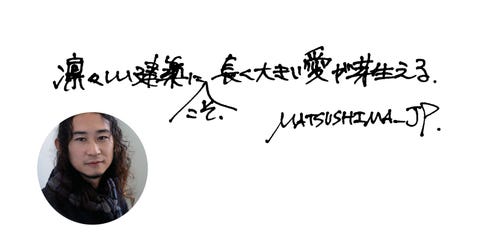 凛々しい建築に長く大きい愛が芽生える.
こそ.
MATSUSHIMA_JP.